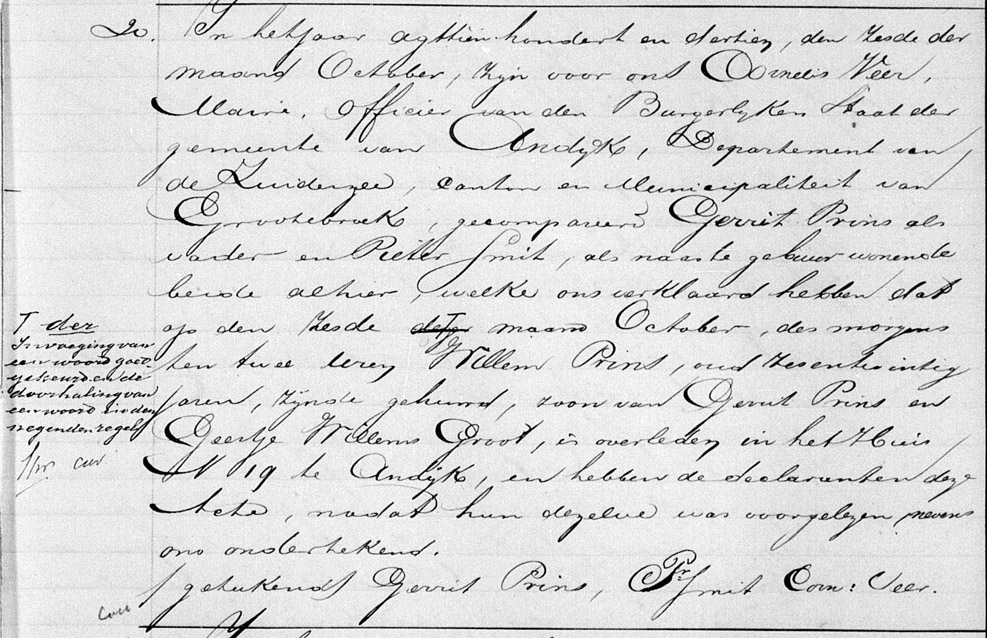 20. In het jaar agttienhondert en dertien, den zesde der
maand October, zijn voor ons Cornelis Veer,
Maire, Officier van den Burgerlyken Staat der
gemeente van Andyk, Departement van
de Zuiderzee, canton en Municipaliteit van
Grootebroek, gecompareerd Gerrit Prins als
vader en Pieter Smit, als naaste gebuur wonende
beide alhier, welke ons verklaard hebben dat
op den zesde dezer ꓔ maand October, des morgens
ten twee uren Willem Prins, oud zesentwintig
jaren, zynde gehuwd, zoon van Gerrit Prins en
Geertje Willems Groot, is overleden in het Huis
N 19 te Andijk, en hebben de declaranten deze
Acte, nadat hun dezelve was voorgelezen nevens
ons ondertekend.
/getekend/ Gerrit Prins, Pr Smit Corn: Veer.
T der
Invoeging van
een woord goed-
gekeurd en de
doorhaling van
een woord in den
negenden regel